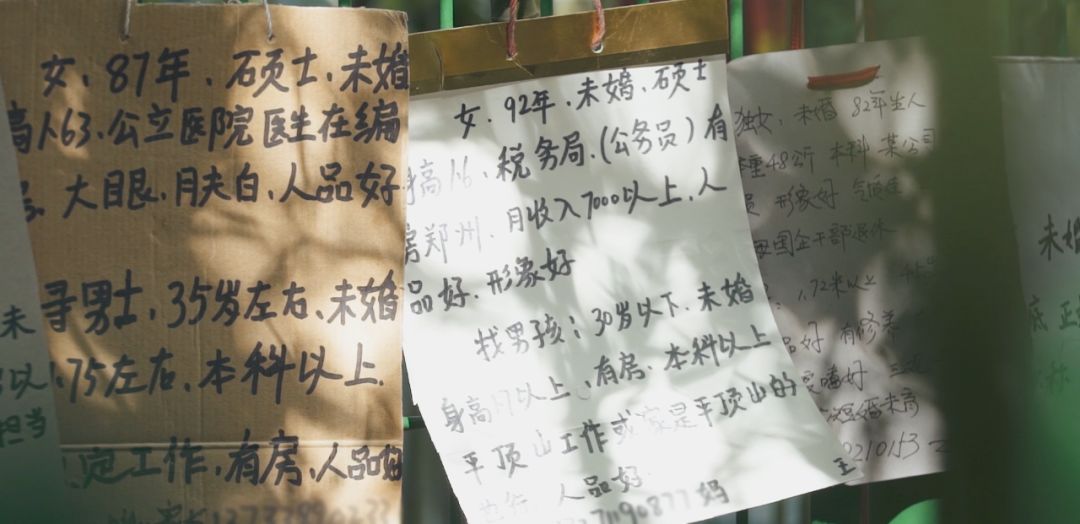 女、87年、硕士、未婚
高1.63、公立医院医生在编
大眼、肤白、人品好
寻男士、35岁左右、未婚
1.75左右、本科以上.
定工作、有房、人品好
女、92年、未婚、硕士
身高1.6、税务局、(公务员)有
房郑州、月收入7000以上、人
品好、形象好
找男孩：30岁以下、未婚
身高1.7以上、有房、本科以上
平顶山工作或家是平顶山的
也行 人品好
妈
王
独女、未婚 82年生人
体重48公斤 本科 某公司
员 形象好 气质佳
母国企干部退休
1.72米以上
品好 有修养
嗜好
短婚未育
210153
未婚
底 正
称
未
以
担当